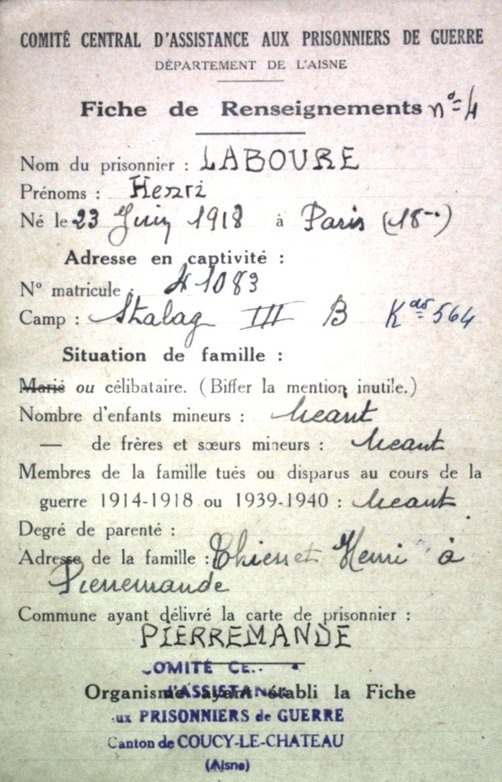 COMITÉ CENTRAL D'ASSISTANCE AUX PRISONNIERS DE GUERRE
DÉPARTEMENT DE L'AISNE
Fiche de Renseignements nº 4
Nom du prisonnier : LABOURE
Prénoms : Henri
Né le 23 Juin 1918 à Paris (18
Adresse en captivité :
Nº matricule : 41083
Camp : Stalag III B Kdo 564
Situation de famille :
Marié ou célibataire. (Biffer la mention inutile.)
Nombre d'enfants mineurs : Néant
— de frères et sœurs mineurs : Néant
Membres de la famille tués ou disparus au cours de la
guerre 1914-1918 ou 1939-1940 : Néant
Degré de parenté :
Adresse de la famille : Henri à
Pierremande
Commune ayant délivré la carte de prisonnier :
PIERREMANDE
COMITÉ CE
Organisme ayant établi la Fiche
d'ASSISTAN
ux PRISONNIERS de GUERRE
Canton de COUCY-LE-CHATEAU
(Aisne)